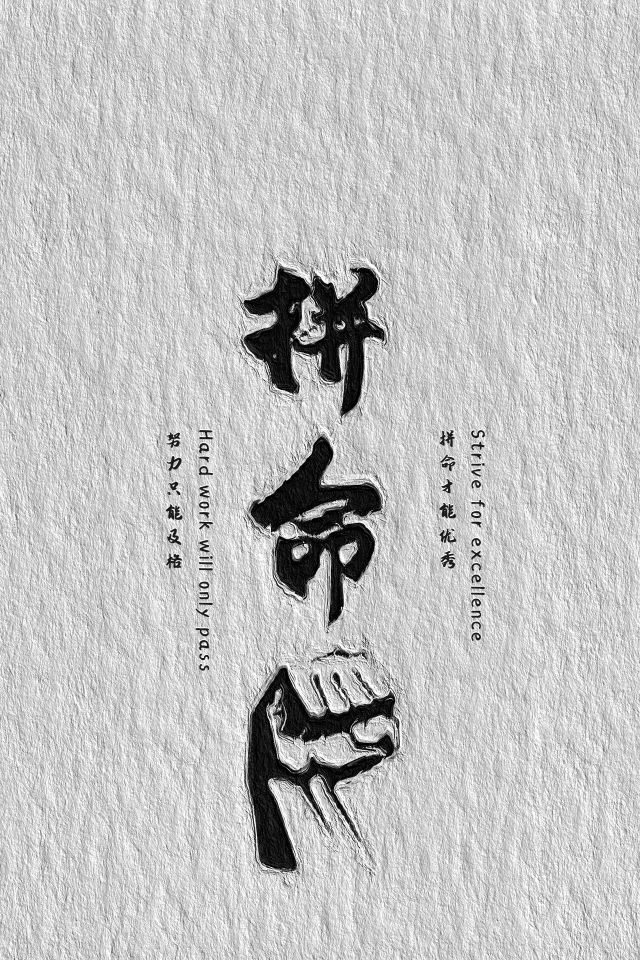 拼命
努力只能及格
Hard work will only pass
拼命才能优秀
Strive for excellence